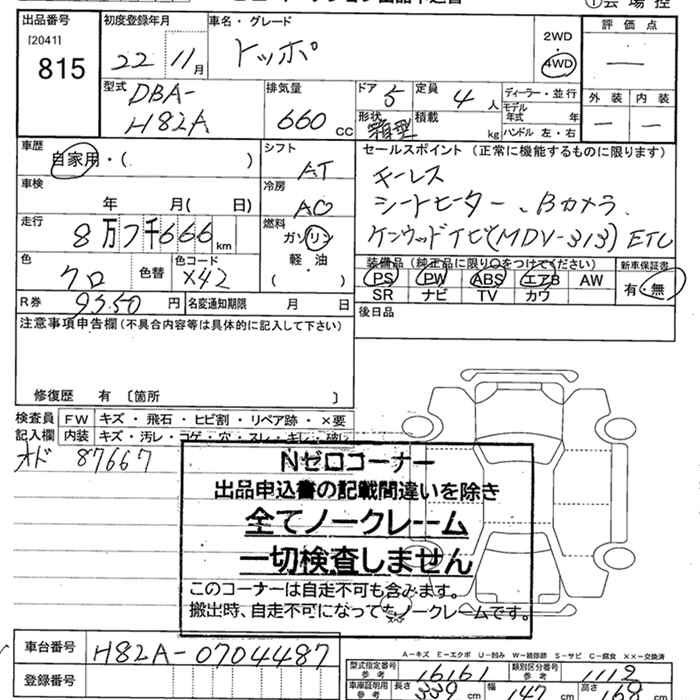 ①会場控
出品番号 初度登録年月 車名・グレード 評価点
[2041] 815 22年11月 トッポ 2WD 4WD ―
型式 排気量 ドア 定員 ディーラー・並行 外装 内装
DBA-H82A 660cc 5 4人 モデル年式 年 ― ―
形状 箱型 積載 kg ハンドル 左・右
車歴 シフト セールスポイント(正常に機能するものに限ります)
自家用・( ) AT キーレス
車検 冷房 シートヒーター、Bカメラ
年 月( 日) AC
走行 燃料 ケンウッドナビ(MDV-313) ETC
8万7千666km ガソリン
色 色替 色コード 軽・油 装備品(純正品に限り○をつけてください) 新車保証書
クロ X42 ( ) PS PW ABS エアB AW 有・無
SR ナビ TV カワ
R券 9350円 名変通知期限 月 日 後日品
注意事項申告欄(不具合内容等は具体的に記入して下さい)
修復歴 有 〔箇所 〕
検査員 FW キズ・飛石・ヒビ割・リペア跡・×要
記入欄 内装 キズ・汚レ・コゲ・穴・スレ・キレ・破レ
オド 87667
Nゼロコーナー
出品申込書の記載間違いを除き
全てノークレーム
一切検査しません
このコーナーは自走不可も含みます。
搬出時、自走不可になってもノークレームです。
A－キズ E－エクボ U－凹み W－補修跡 S－サビ C－腐食 ××－交換済
車台番号 H82A-0704487
登録番号
型式指定番号 参考 16161 類別区分番号 参考 1112
車庫証明用 参考 長さ 339cm 幅 147cm 高さ 168cm